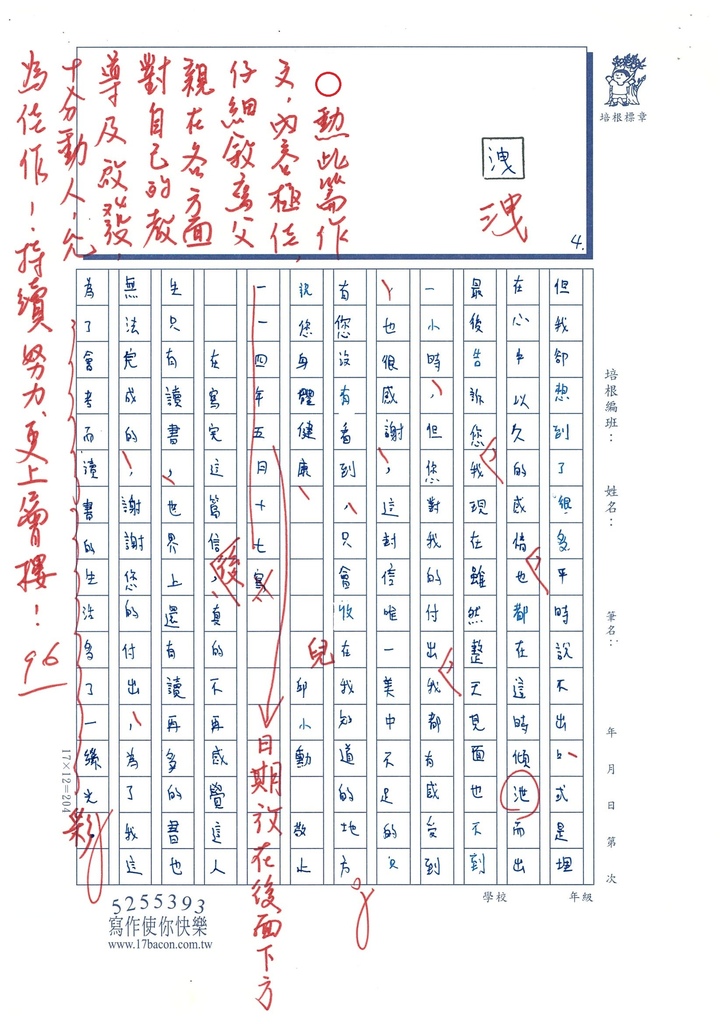 培根標章
洩
洩
4.
○勳此篇作
文,內容極佳,
仔細敘寫父
親在各方面
對自己的教
導及啟發,
十分動人,允
為佳作!持續努力,更上層樓!
96
培根編班:
姓名:
筆名:
年 月 日 第 次
年級
學校
但我卻想到了很多平時說不出口、或是埋
在心中以久的感情,也都在這時傾洩而出
最後告訴您,我現在雖然整天見面也不到
一小時,但您對我的付出,我都有感受到
,也很感謝,這封信唯一美中不足的只
有您沒有看到,只會收在我知道的地方。
祝您身體健康、
兒 邱小勳敬上
一一四年五月十七寫
日期放在後面下方
在寫完這篇信後,真的不再感覺這人
生只有讀書,世界上還有讀再多的書也
無法完成的,謝謝您的付出,為了我這
為了會考而讀書的生活多了一絲光彩。
17×12=204
5255393
寫作使你快樂
www.17bacon.com.tw